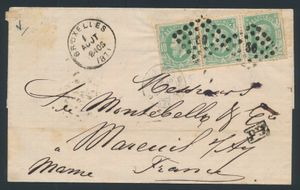 BRUXELLES
AOUT
1871
60
Messieurs
de Montebello & Cie
Mareuil s/Ay
Marne France
P.D.